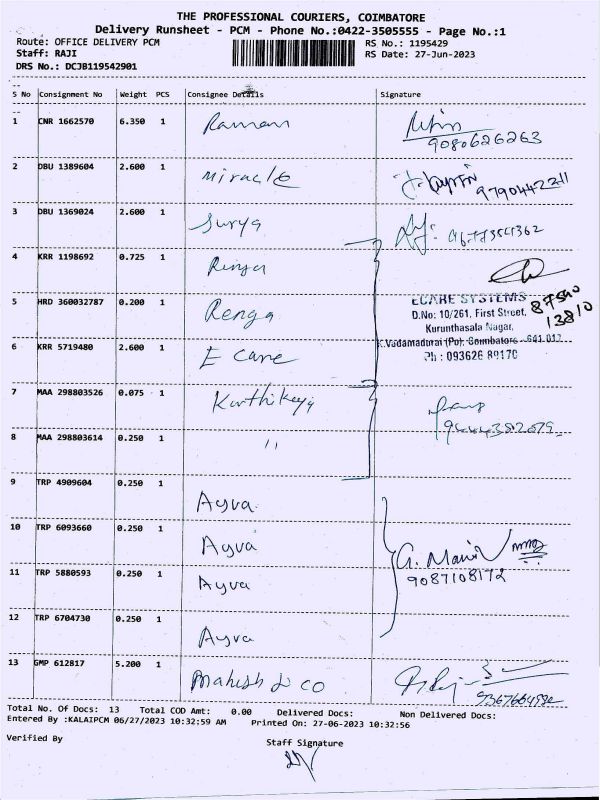 THE PROFESSIONAL COURIERS, COIMBATORE
Delivery Runsheet - PCM - Phone No.:0422-3505555 - Page No.:1
Route: OFFICE DELIVERY PCM RS No.: 1195429
Staff: RAJI RS Date: 27-Jun-2023
DRS No.: DCJB119542901
S No Consignment No Weight PCS Consignee Details Signature
1 CNR 1662570 6.350 1 Raman
9080626263
2 DBU 1389604 2.600 1 Miracle
9790442211
3 DBU 1369024 2.600 1 Surya
4 KRR 1198692 0.725 1
5 HRD 360032787 0.200 1 Renga
ECARE SYSTEMS
D.No: 10/261, First Street,
Kurunthasala Nagar,
K.Vadamadurai (Po), Coimbatore - 641 017
Ph : 093626 89170
87540
13810
6 KRR 5719480 2.600 1 E Care
7 MAA 298803526 0.075 1 Karthikeya
8 MAA 298803614 0.250 1 "
9 TRP 4909604 0.250 1 Ayva
10 TRP 6093660 0.250 1 Ayva
11 TRP 5880593 0.250 1 Ayva
9087108172
12 TRP 6704730 0.250 1 Ayva
13 GMP 612817 5.200 1 Mahesh & co
Total No. Of Docs: 13 Total COD Amt: 0.00 Delivered Docs: Non Delivered Docs:
Entered By :KALAIPCM 06/27/2023 10:32:59 AM Printed On: 27-06-2023 10:32:56
Verified By
Staff Signature